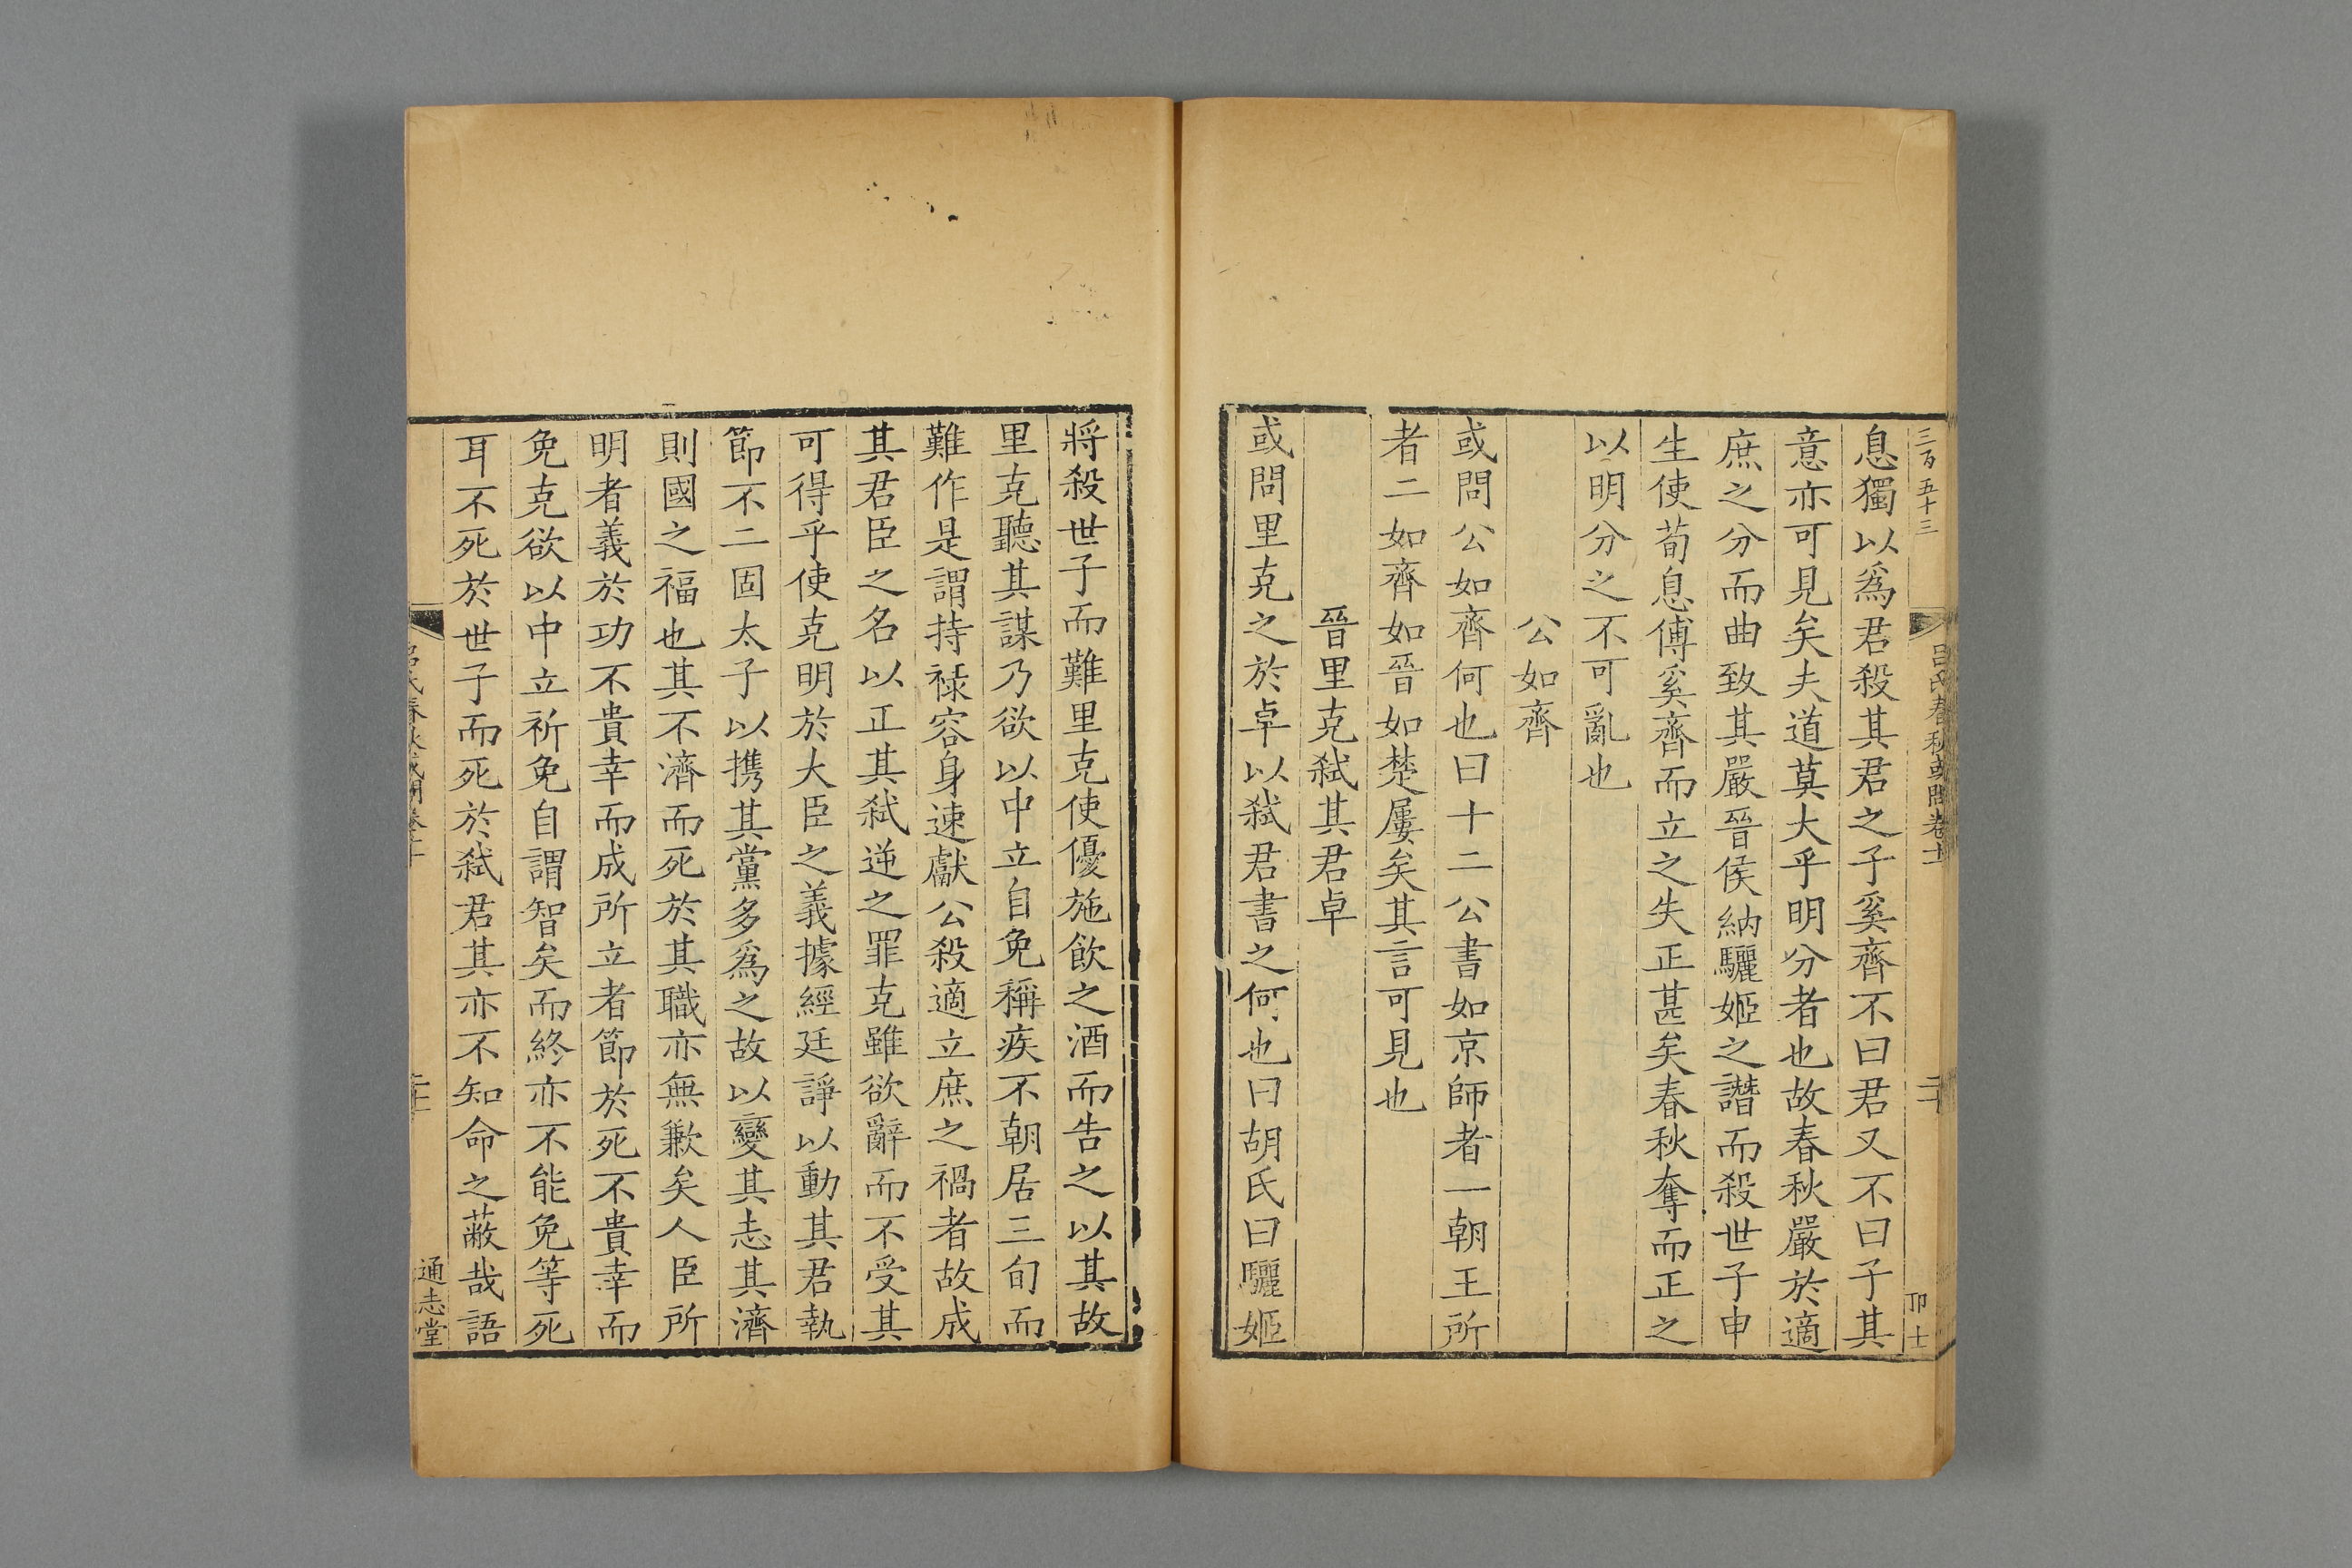 三百五十三
呂氏春秋或問卷十
二十
息獨以爲君殺其君之子奚齊不曰君又不曰子其
意亦可見矣夫道莫大乎明分者也故春秋嚴於適
庶之分而曲致其嚴晉侯納驪姬之譖而殺世子申
生使荀息傅奚齊而立之失正甚矣春秋奪而正之
以明分之不可亂也
公如齊
或問公如齊何也曰十二公書如京師者一朝王所
者二如齊如晉如楚屢矣其言可見也
晉里克弑其君卓
或問里克之於卓以弑君書之何也曰胡氏曰驪姬
將殺世子而難里克使優施飲之酒而告之以其故
里克聽其謀乃欲以中立自免稱疾不朝居三旬而
難作是謂持祿容身速獻公殺適立庶之禍者故成
其君臣之名以正其弑逆之罪克雖欲辭而不受其
可得乎使克明於大臣之義據經廷諍以動其君執
節不二固太子以携其黨多爲之故以變其志其濟
則國之福也其不濟而死於其職亦無歉矣人臣所
明者義於功不貴幸而成所立者節於死不貴幸而
免克欲以中立祈免自謂智矣而終亦不能免等死
耳不死於世子而死於弑君其亦不知命之蔽哉語
通志堂